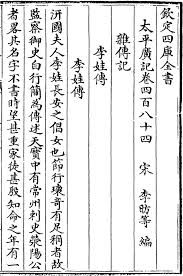 欽定四庫全書
太平廣記卷四百八十四
宋 李昉等 編
雜傳記
李娃傳
李娃傳
汧國夫人李娃長安之倡女也節行瓌奇有足稱者故
監察御史白行簡為傳述天寶中有常州刺史滎陽公
者畧其名字不書時望甚重家徒甚殷知命之年有一